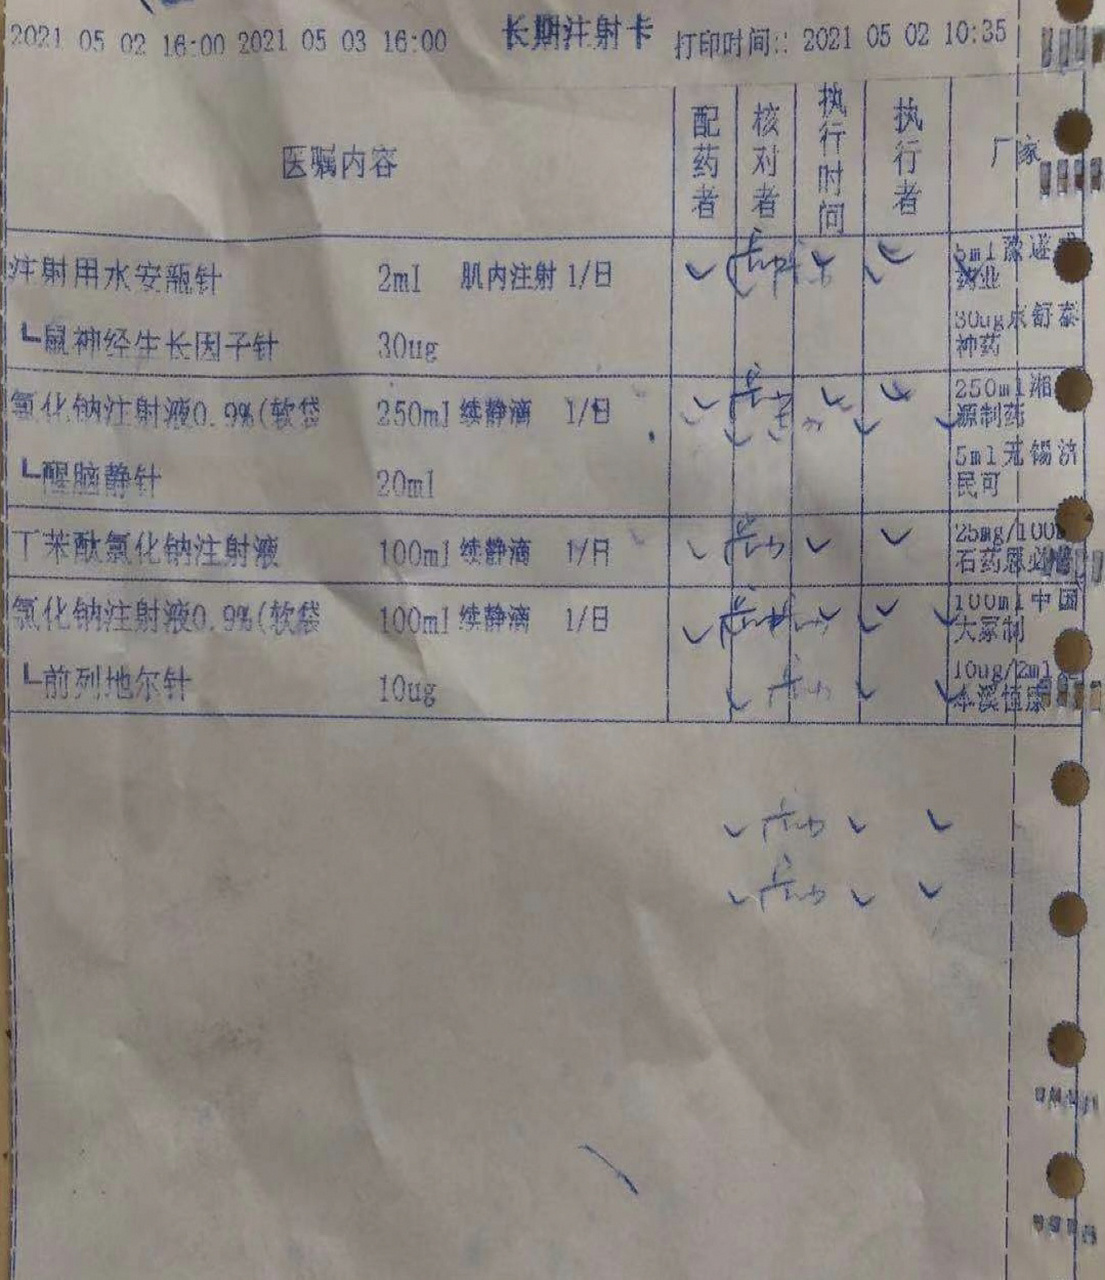 2021 05 02 16:00 2021 05 03 16:00 长期注射卡 打印时间:: 2021 05 02 10:35
医嘱内容 配药者 核对者 执行时间 执行者 厂家
注射用水安瓿针 2ml 肌内注射 1/日 5ml 药业
┗鼠神经生长因子针 30ug 30ug 舒泰神药
氯化钠注射液0.9%(软袋 250ml 续静滴 1/日 250ml湘源制药
┗醒脑静针 20ml 5ml无锡济民可
丁苯酞氯化钠注射液 100ml 续静滴 1/日 25mg/100 石药恩必普
氯化钠注射液0.9%(软袋 100ml 续静滴 1/日 100ml中国大冢制
┗前列地尔针 10ug 10ug/2ml 本溪恒康